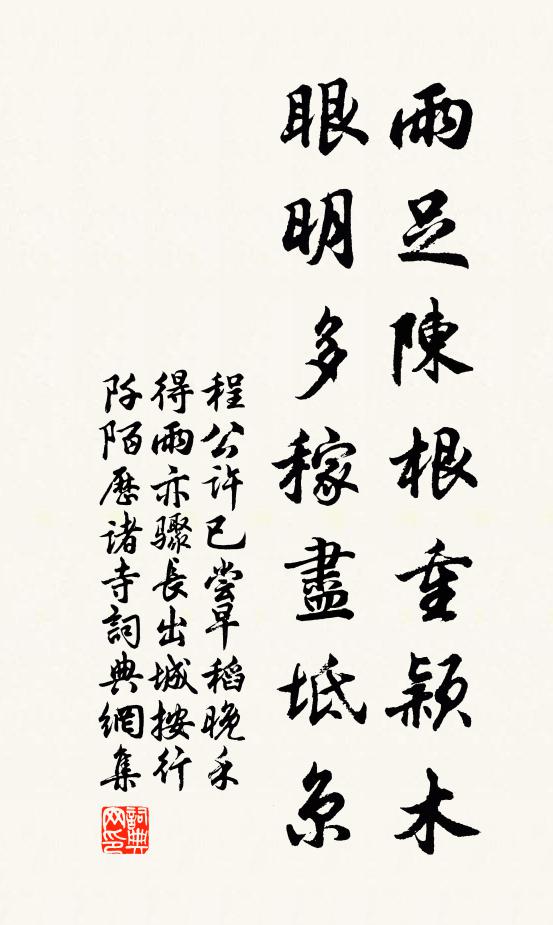 雨足陳根重穎木
眼明多稼盡坻京
程公許已嘗早稻晚禾
得雨亦驟長出城按行
阡陌歷諸寺詞典網集
詞典
网印